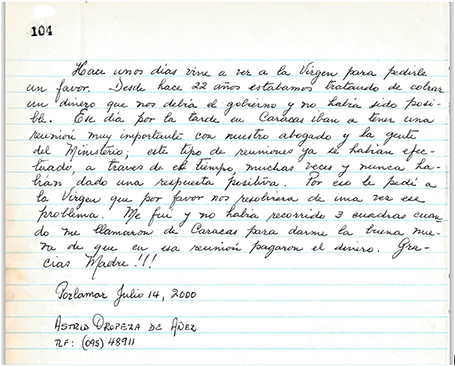 104
Hace unos días vine a ver a la Virgen para pedirle
un favor. Desde hace 22 años estabamos tratando de cobrar
un dinero que nos debía el gobierno y no había sido posi-
ble. Ese día por la tarde en Caracas iban a tener una
reunión muy importante con nuestro abogado y la gente
del Ministerio; este tipo de reuniones ya se habían efec-
tuado, a traves de el tiempo, muchas veces y nunca ha-
bían dado una respuesta positiva. Por eso le pedí a
la Virgen que por favor nos resolviera de una vez ese
problema. Me fuí y no había recorrido 3 cuadras cuan-
do me llamaron de Caracas para darme la buena nue-
va de que en esa reunión pagaron el dinero. Gra-
cias Madre!!!
Porlamar Julio 14, 2000
ASTRID OROPEZA DE
TLF: (095) 48911